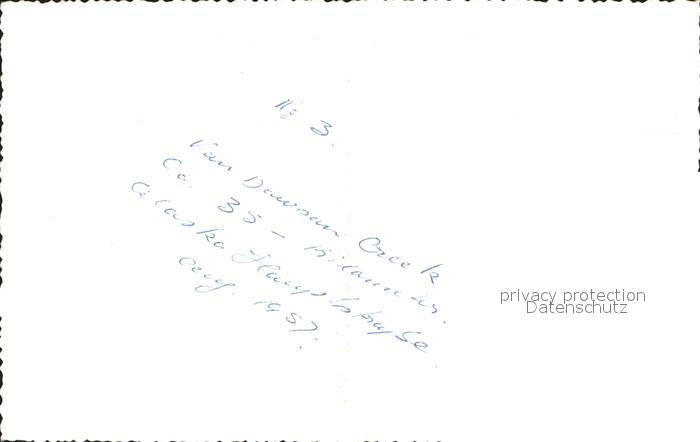 No 3.
Van Dawson Creek
Ca. 35 - Kilometer.
Alaska Hauptstraße
Aug. 1957.
privacy protection
Datenschutz